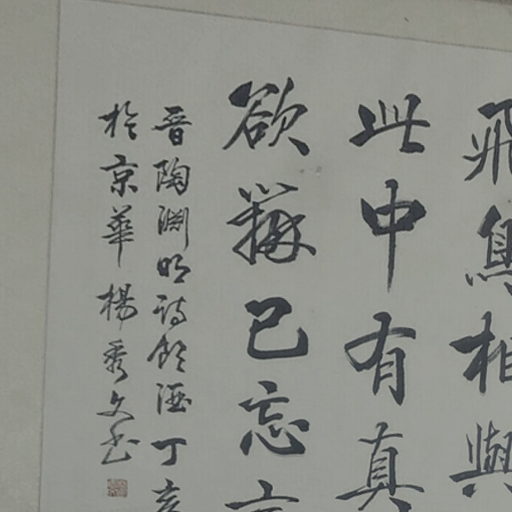 飛鳥相與
此中有真
欲辯已忘言
晉陶淵明詩飲酒丁亥
於京華楊秀文書